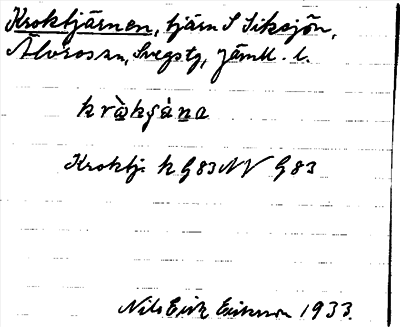 Kroktjärnen, tjärn S Siksjön,
Älvrosan, Svegstg, Jämtl. l.
kròkʃána
Kroktj. k G 83 NV G 83
Nils Erik Erikson 1933.